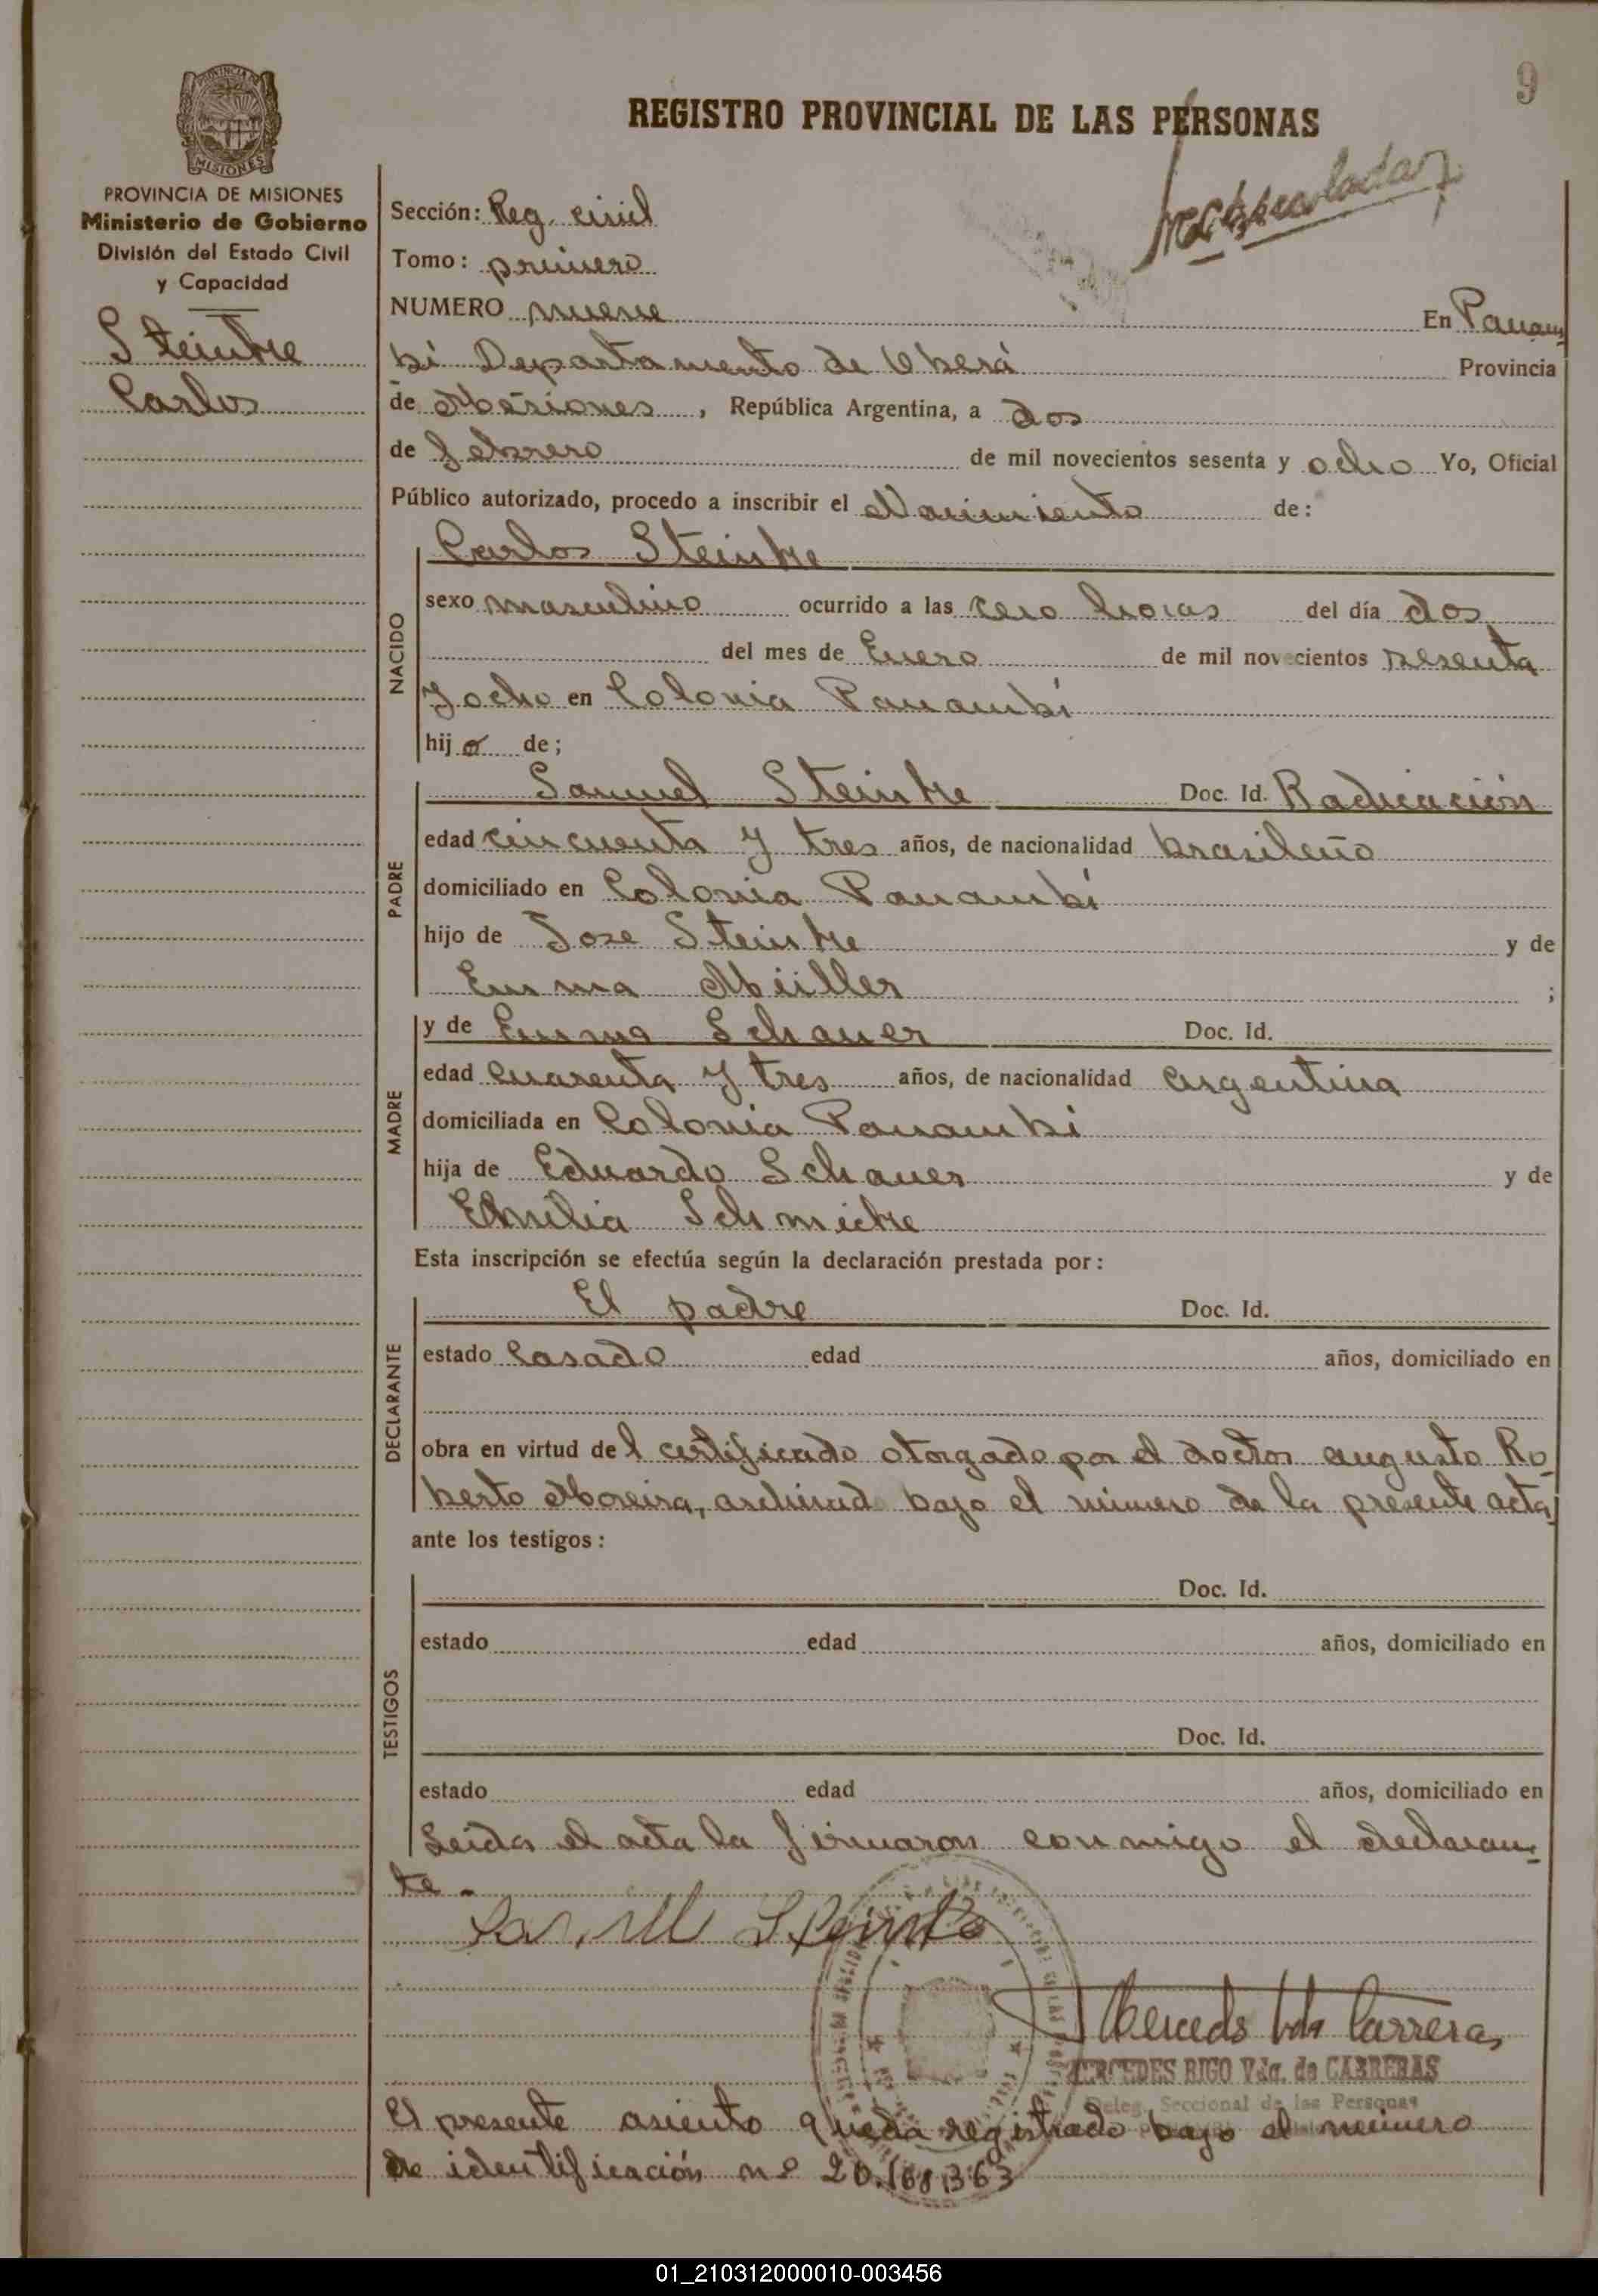 9
REGISTRO PROVINCIAL DE LAS PERSONAS
PROVINCIA DE MISIONES
Ministerio de Gobierno
División del Estado Civil
y Capacidad
Steinke
Carlos
Sección: Reg. civil
Tomo: primero
NUMERO nueve En Panam
bí Departamento de Oberá Provincia
de Misiones, República Argentina, a dos
de febrero de mil novecientos sesenta y ocho Yo, Oficial
Público autorizado, procedo a inscribir el Nacimiento de:
NACIDO
Carlos Steinke
sexo masculino ocurrido a las cero horas del día dos
del mes de Enero de mil novecientos sesenta
y ocho en Colonia Panambí
hijo de;
PADRE
Samuel Steinke Doc. Id. Radicación
edad cincuenta y tres años, de nacionalidad brasileño
domiciliado en Colonia Panambí
hijo de Jose Steinke y de
Emma Müller ;
MADRE
y de Emma Schauer Doc. Id.
edad cuarenta y tres años, de nacionalidad argentina
domiciliada en Colonia Panambí
hija de Eduardo Schauer y de
Emilia Schmidke
Esta inscripción se efectúa según la declaración prestada por:
DECLARANTE
El padre Doc. Id.
estado Casado edad años, domiciliado en
obra en virtud del certificado otorgado por el doctor augusto Ro
berto Moreira, archivado bajo el número de la presente acta,
ante los testigos:
TESTIGOS
Doc. Id.
estado edad años, domiciliado en
Doc. Id.
estado edad años, domiciliado en
Leida el acta la firmaron conmigo el declaran-
te.-
MERCEDES RIGO Vda. de CARRERAS
Deleg. Seccional de las Personas
El presente asiento queda registrado bajo el número
de identificación nº 20.168.363
01_210312000010-003456